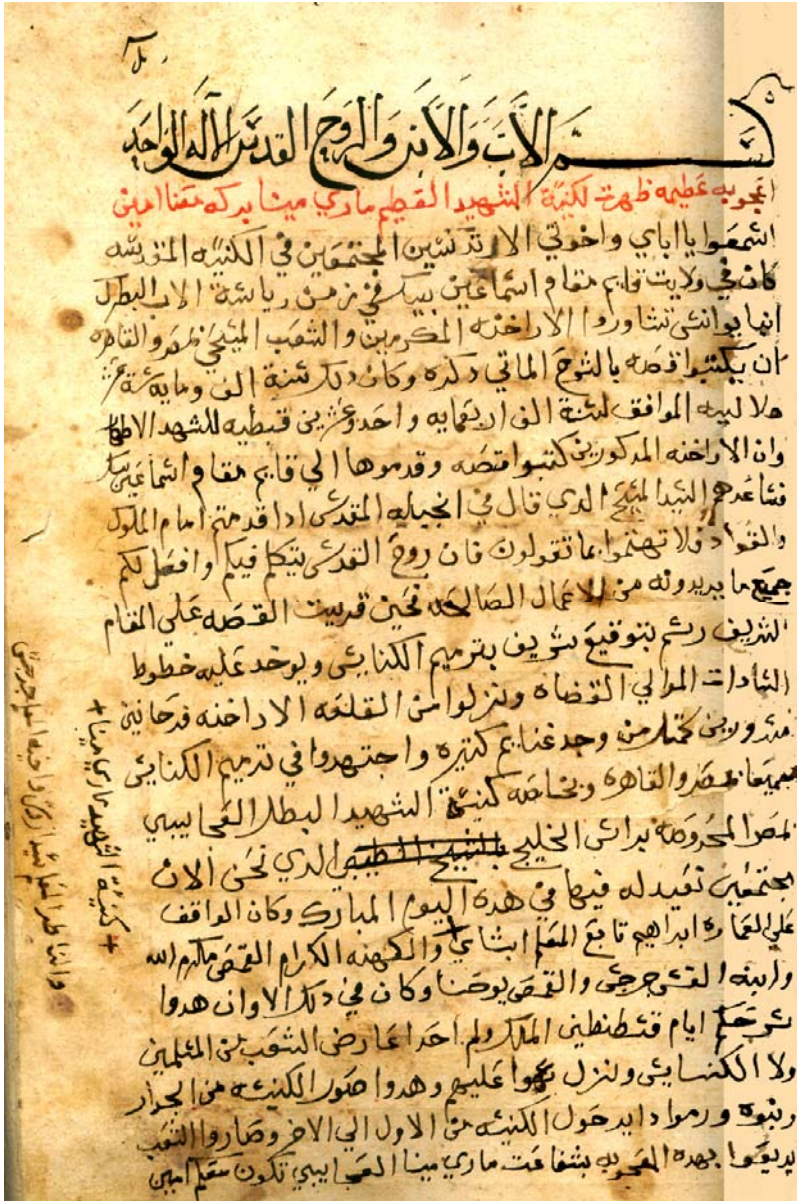 بسم الاب والابن والروح القدس الاله الواحد
اعجوبه عظيمه ظهرت لكنيسة الشهيد العظيم ماري مينا بركه معنا امين
اسمعوا يا اباي واخوتي الارتدكسيين المجتمعين في الكنيسه المقدسه
كان في ولايت قايم مقام اسماعين بيك في زمن رياسة الاب البطرك
انبا يوانس تشاوروا الاراخنه المكرمين والشعب المسيحي بمصر والقاهره
ان يكتبوا قصه بالشرح الماتي دكره وكان دلك سنة الف ومايه
هلاليه الموافق لسنة الف اربعمايه واحد وعشرين قبطيه للشهدا الاطهار
وان الاراخنه المدكورين كتبوا قصه وقدموها الي قايم مقام اسماعين بيك
فساعدهم السيد المسيح الدي قال في انجيله المقدس ادا قدمتم امام الملوك
والقواد فلا تهتموا بما تقولون فان روح القدس يتكلم فيكم وافعل لكم
جميع ما يريدونه من الاعمال الصالحه فحين قريت القصه علي المقام
الشريف رسم بتوقيع شريف بترميم الكنايس ويوخد عليه خطوط
السادات الموالي القضاه ونزلوا من القلعه الاراخنه فرحانين
مسرورين كمتل من وجد غنايم كتيره واجتهدوا في ترميم الكنايس
جميعا بمصر والقاهره وبخاصه كنيسة الشهيد البطل العجايبي
بمصر المحروصه براس الخليج الدي نحن الان
مجتمعين نعيد له فيها في هده اليوم المبارك وكان الواقف
علي العماره ابراهيم تابع المعلم ابشاي والكهنه الكرام القمص مكرم الله
وابنه القس جرجس والقمص يوحنا وكان في دلك الاوان هدوا
حكم ايام قسطنطين الملك ولم احدا عارض الشعب من المسلمين
ولا الكنسايس ونزل عليهم وهدوا صور الكنيسه من الجوار
وبنوه ورموا داير حول الكنيسه من الاول الي الاخر وصاروا الشعب
بهده العجوبه بشفاعت ماري مينا العجايبي تكون معكم امين
+ كنيسة الشهيد ماري مينا +